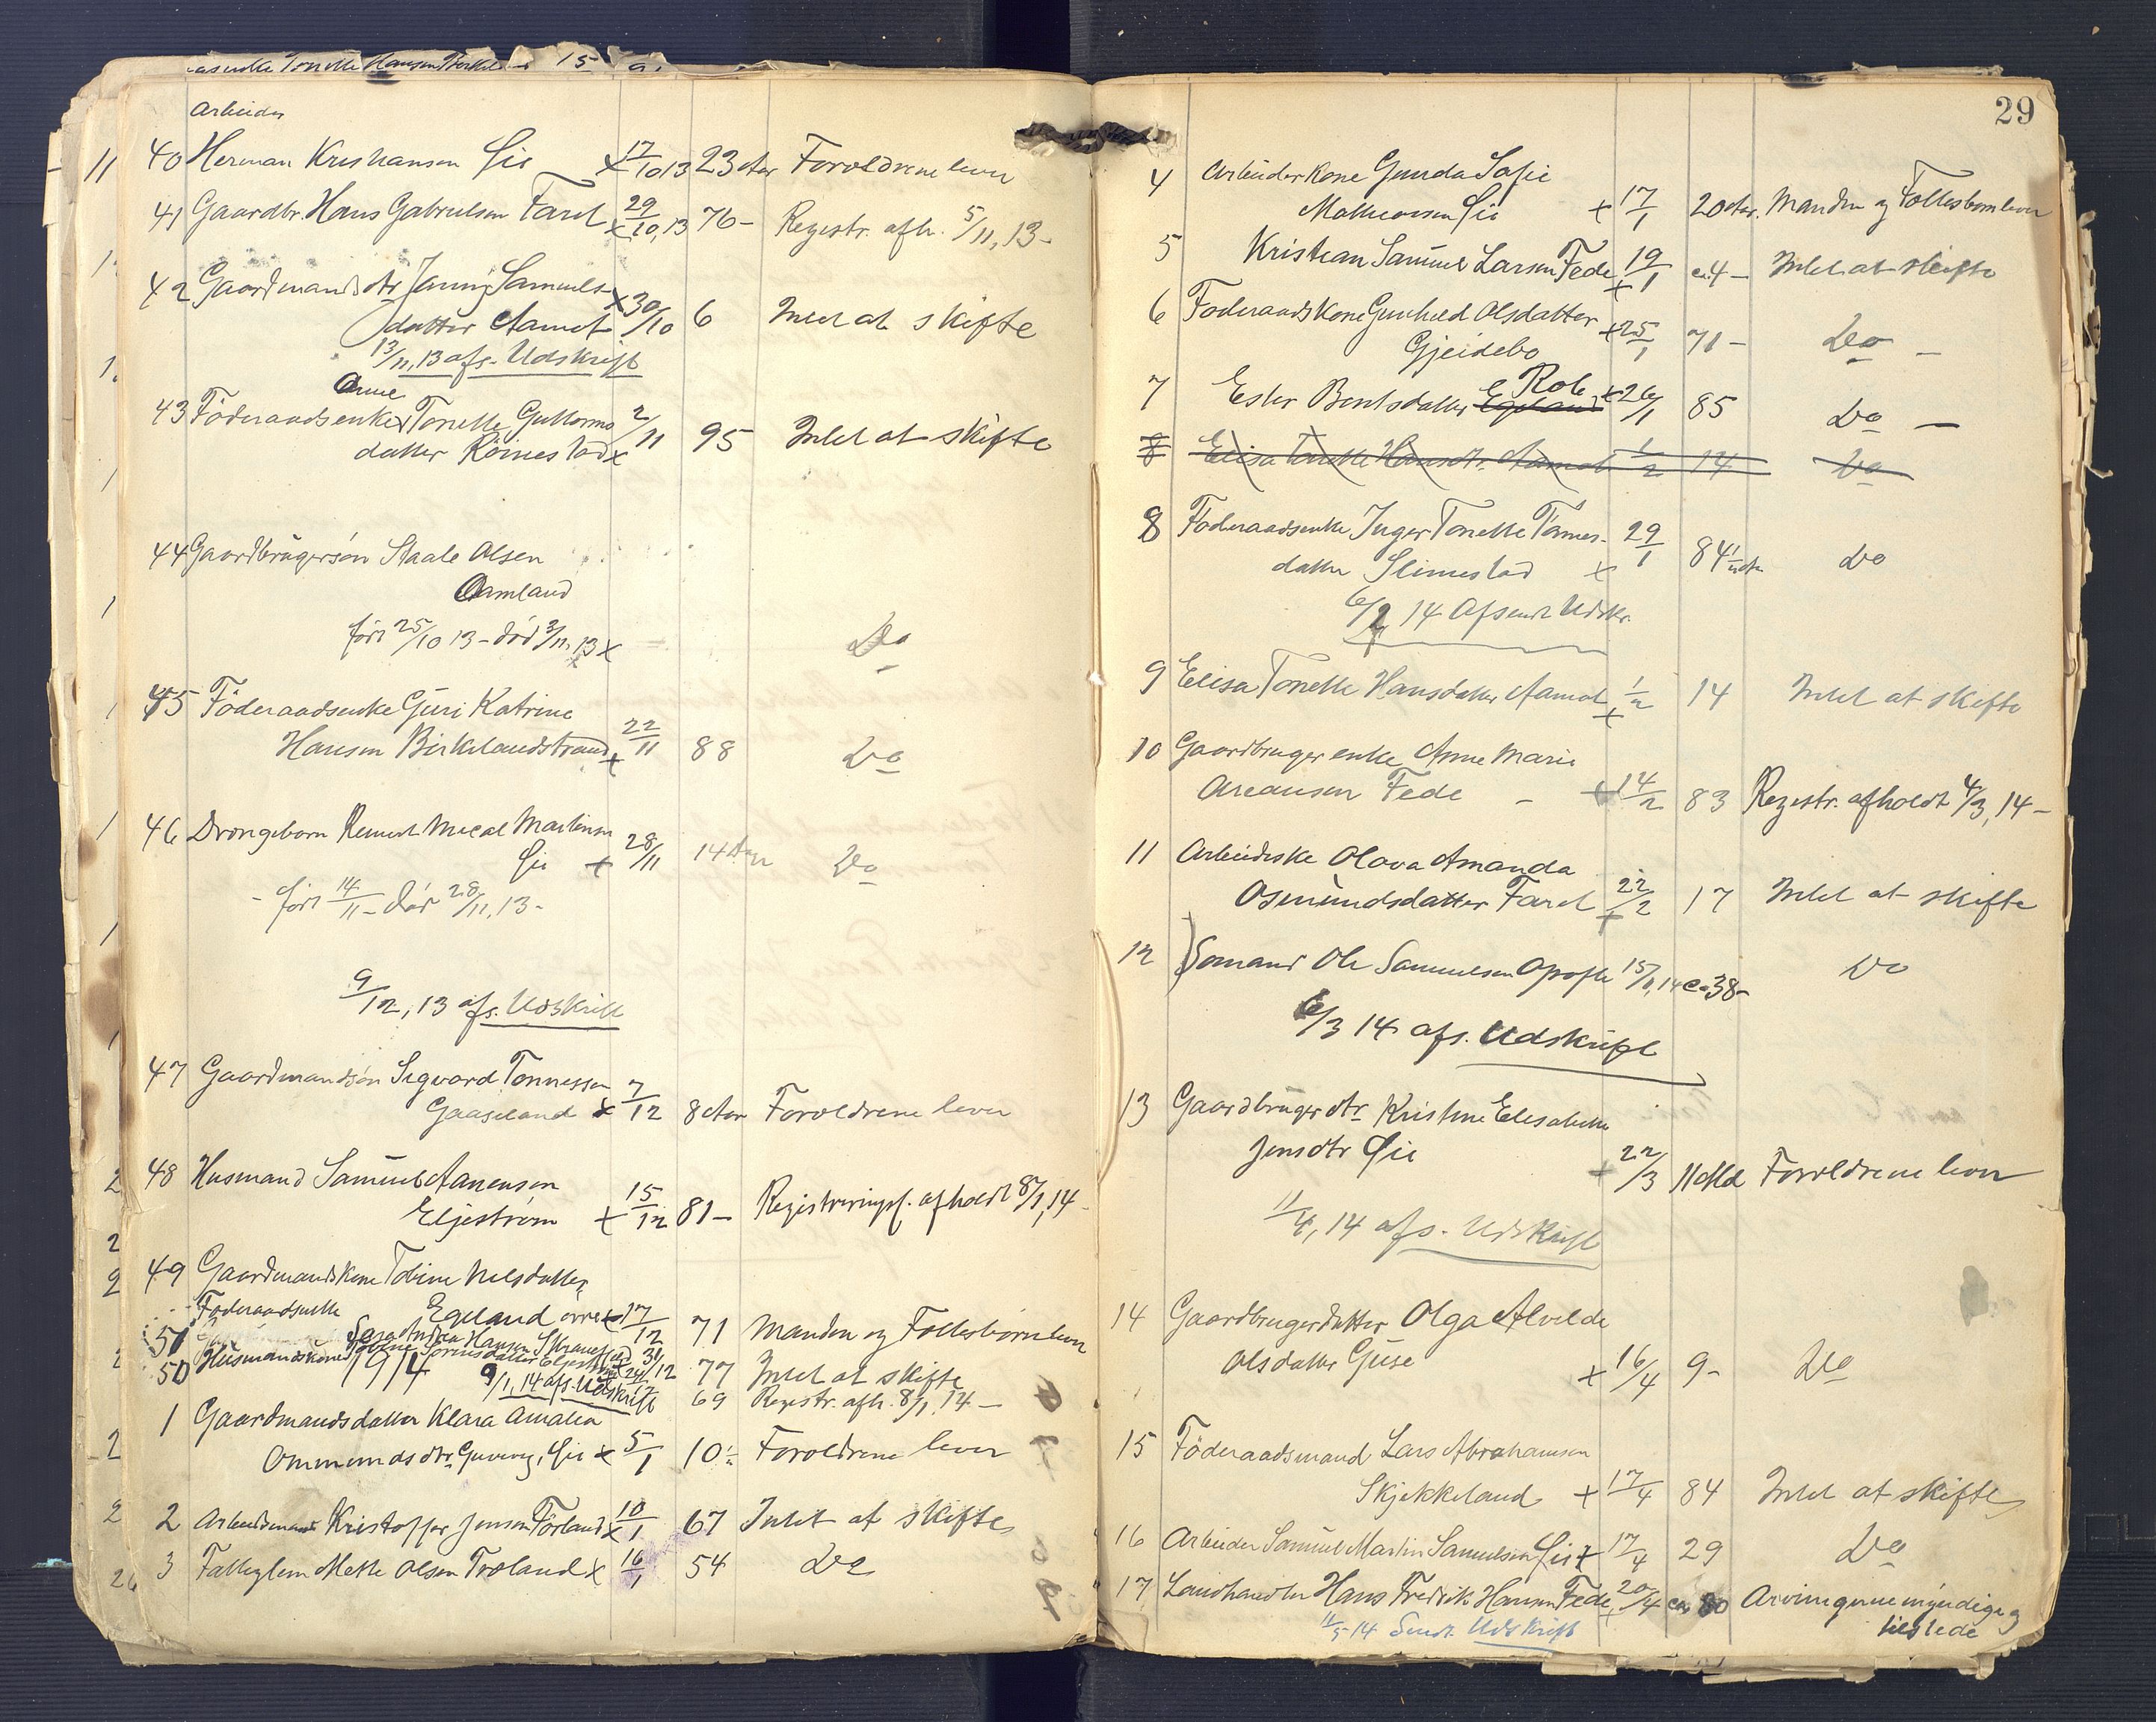 Arbeider
11 40 Herman Kristiansen Øie x 17/10 13 23 Aar Forældrene lever
41 Gaardbr. Hans Gabrielsen Faret 29/10, 13 x 76 - Registr. afh. 5/11, 13 -
42 Gaardmandsdtr Jenny Samuels-
datter Aamot x 30/10 6 Intet at skifte
13/11, 13 afs. Udskrift
Anne
43 Föderaadsenke Tonette Guttorms
datter Röinestad x 2/11 95 Intet at skifte
44 Gaardbrugersön Staale Olsen
Omland
född 25/10 13 - död 3/11, 13 x Do
45 Föderaadsenke Guri Katrine
Hansen Birkelandstrand x 22/11 88 Do
46 Drengebarn Reinert Micael Martinsen
Øie x 28/11 14 Dage Do
- född 14/11 - död 28/11, 13 -
9/12, 13 afs. Udskrift
47 Gaardmandsön Sigvard Tönnessen
Gaaseland x 7/12 8 Aar Forældrene lever
48 Husmand Samuel Aanensen
Eljeström x 15/12 81 - Registreringsf. afholdt 8/1, 14 -
49 Gaardmandskone Tobine Nilsdatter
Egeland övre x 17/12 71 Manden og Fællesbörn lever
Föderaadsenke
51 Hansen 31/12 77 Intet at skifte
50 Husmandskone 69 Registr. afh. 8/1, 14 -
1914 9/1, 14 afs. Udskrift
1 Gaardmandsdatter Klara Amalia
Ommundsdtr. Øie x 5/1 10 Forældrene lever
2 Arbeidsmand Kristoffer Jensen Förland x 10/1 67 Intet at skifte
3 Fattiglem Mette Olsen Træland x 16/1 54 Do
29
4 Arbeiderkone Gunda Sofie
Mathiassen Øie x 17/1 20 Aar. Manden og Fællesbarn lever
5 Kristian Samuel Larsen Fede x 19/1 ca. 4 - Intet at skifte
6 Föderaadskone Gunhild Olsdatter
Gjeidebo x 25/1 71 - Do -
7 Ester Bentsdatter Egeland x 26/1 85 Do -
8 Elisa Tonette Hansdtr. Aamot 1/2 14 Do
8 Föderaadsenke Inger Tonette Tönnes-
datter Slimestad x 29/1 84 Do
6/2 14 Afsendt Udskr.
9 Elisa Tonette Hansdatter Aamot x 1/2 14 Intet at skifte
10 Gaardbrugerenke Anne Marie
Areansen Fede - x 14/2 83 Registr. afholdt 4/3, 14 -
11 Arbeiderske Olava Amanda
Osmundsdatter Faret x 22/2 17 Intet at skifte
12 Sömand Ole Samuelsen Opofte 15/1, 14 ca 38 - Do
6/3 14 afs. Udskrift
13 Gaardbrugerdtr. Kristine Elisabeth
Jensdtr Øie x 22/3 11 Md Forældrene lever
11/4, 14 afs. Udskrift
14 Gaardbrugerdatter Olga Alvilde
Olsdatter Guse x 16/4 9 - Do
15 Föderaadsmand Lars Abrahamsen
Skjekkeland x 17/4 84 Intet at skifte
16 Arbeider Samuel Martin Samuelsen Øie x 17/4 29 Do
17 Landhandler Hans Fredrik Hansen Fede x 20/4 ca 80 Arvingerne myndige og
tilstede
11/5 14 Sendt Udskrift